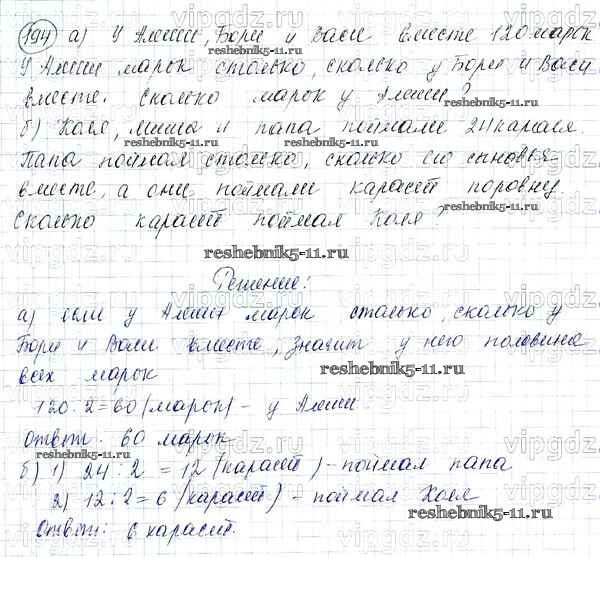 194 а) У Алеши, Бори и Васи вместе 120 марок
У Алеши марок столько, сколько у Бори и Васи
вместе. Сколько марок у Алеши?
reshebnik5-11.ru
б) Коля, Миша и папа поймали 24 карася.
Папа поймал столько, сколько его сыновья
вместе, а они поймали карасей поровну.
Сколько карасей поймал Коля?
reshebnik5-11.ru
Решение:
а) если у Алеши марок столько, сколько у
Бори и Васи вместе, значит у него половина
всех марок
120 : 2 = 60 (марок) - у Алеши
Ответ: 60 марок
б) 1) 24 : 2 = 12 (карасей) - поймал папа
2) 12 : 2 = 6 (карасей) - поймал Коля
Ответ: 6 карасей.
vipgdz.ru